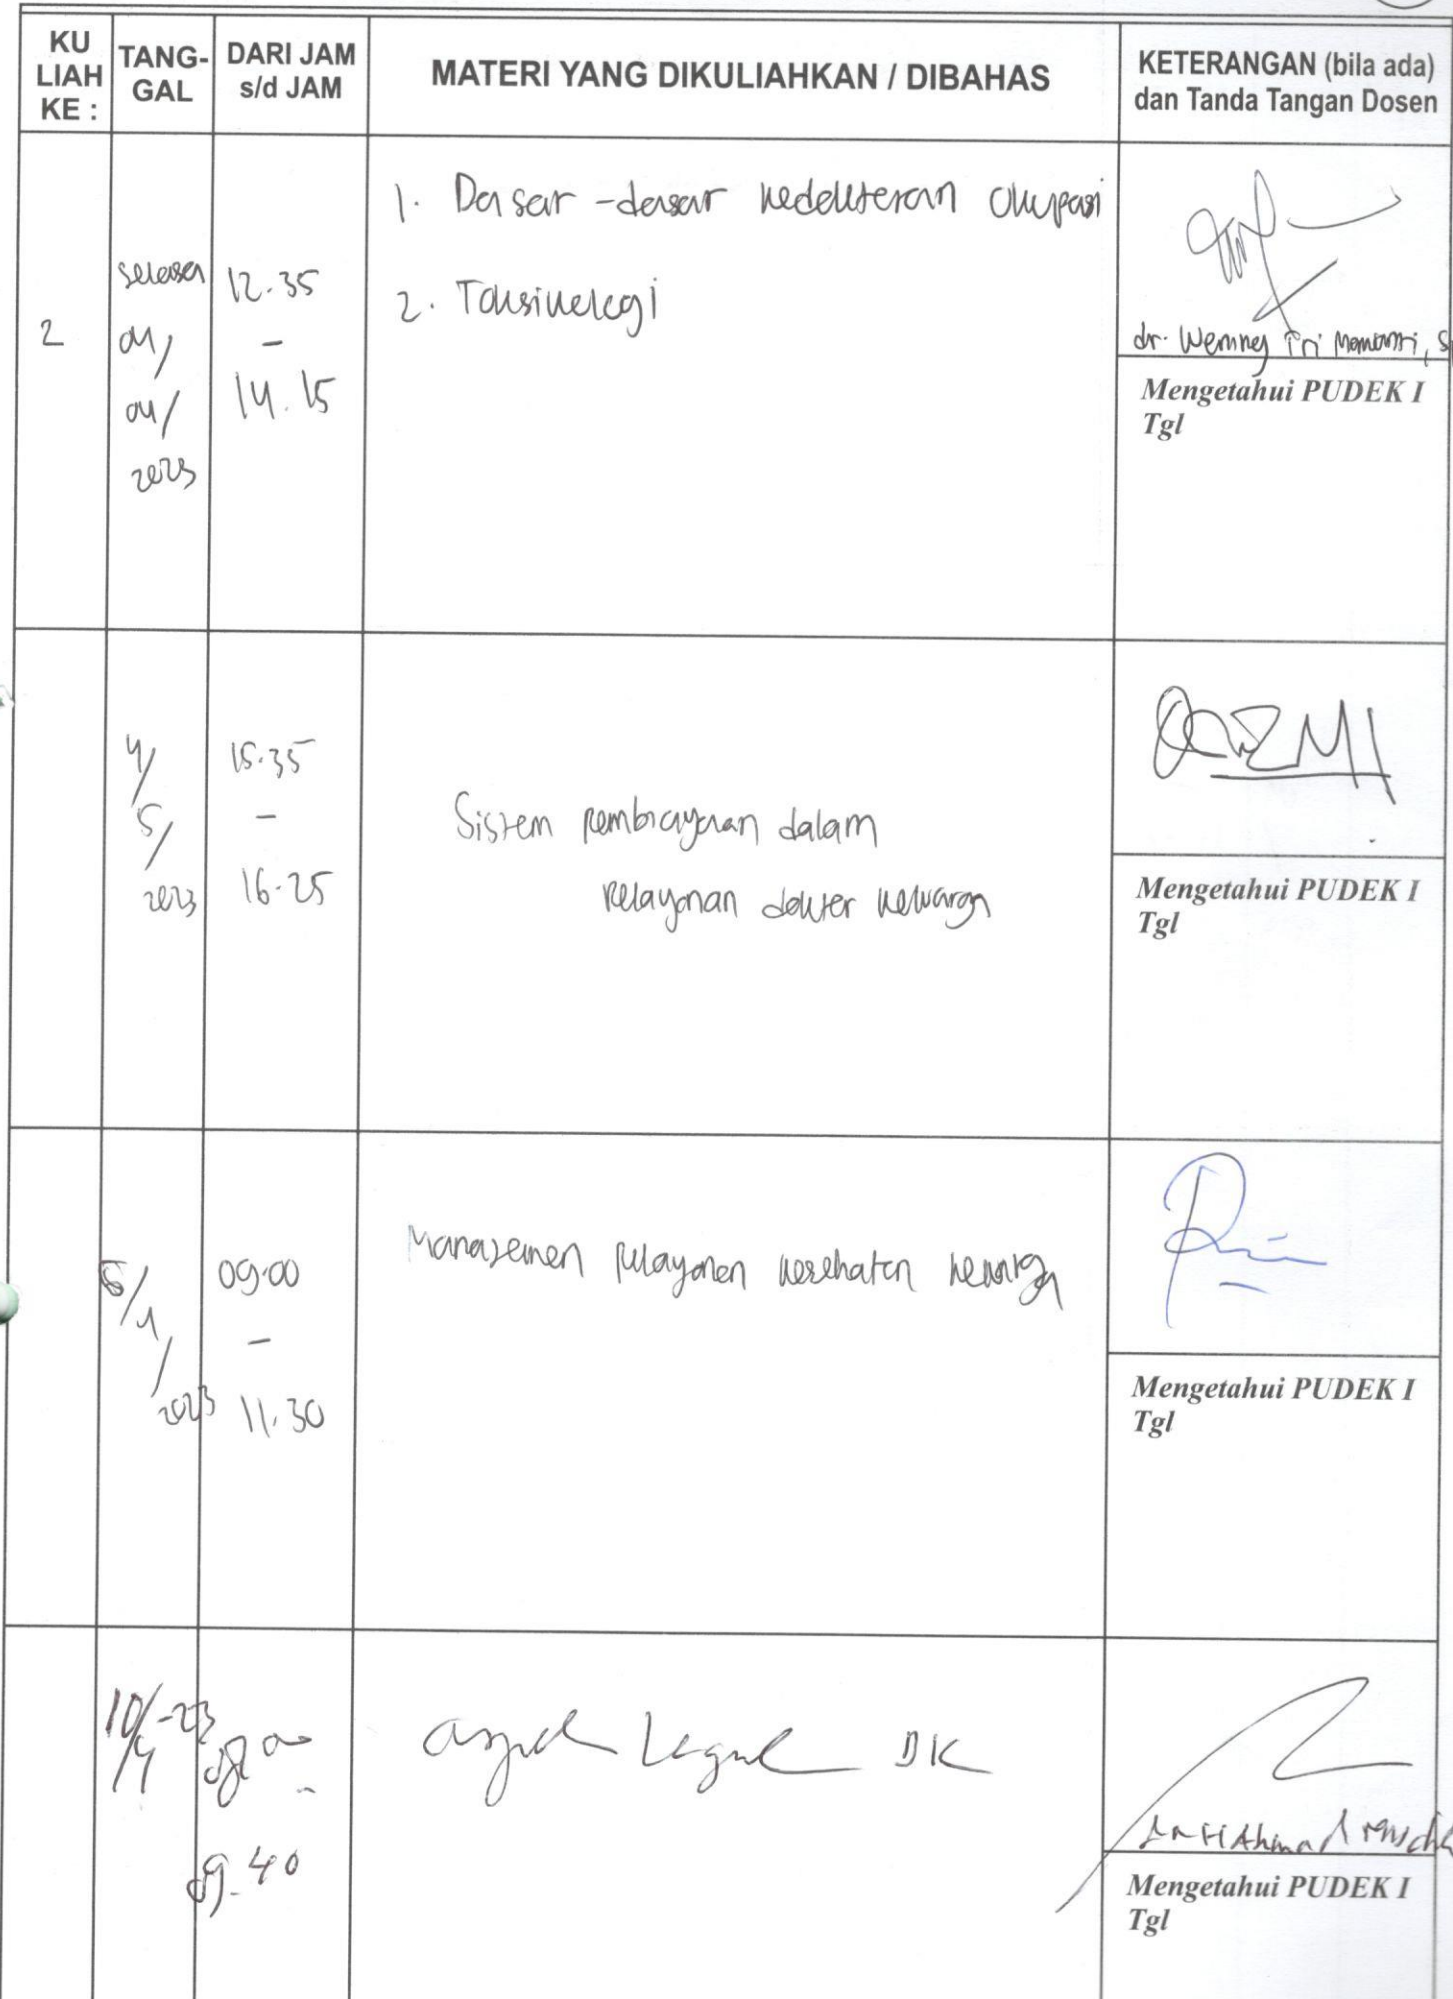 KU LIAH KE :
TANG-GAL
DARI JAM s/d JAM
MATERI YANG DIKULIAHKAN / DIBAHAS
KETERANGAN (bila ada) dan Tanda Tangan Dosen
2
selasa
04/
04/
2023
12.35
-
14.15
1. Dasar-dasar kedokteran okupasi
2. Toksikologi
dr. Wenny Tri
Mengetahui PUDEK I
Tgl
4/
5/
2023
15.35
-
16.25
Sistem pembiayaan dalam
pelayanan dokter keluarga
Mengetahui PUDEK I
Tgl
2023
09.00
-
11.30
Manajemen pelayanan kesehatan keluarga
Mengetahui PUDEK I
Tgl
10/4-23
09.40
aspek Legal DK
Ahmad
Mengetahui PUDEK I
Tgl